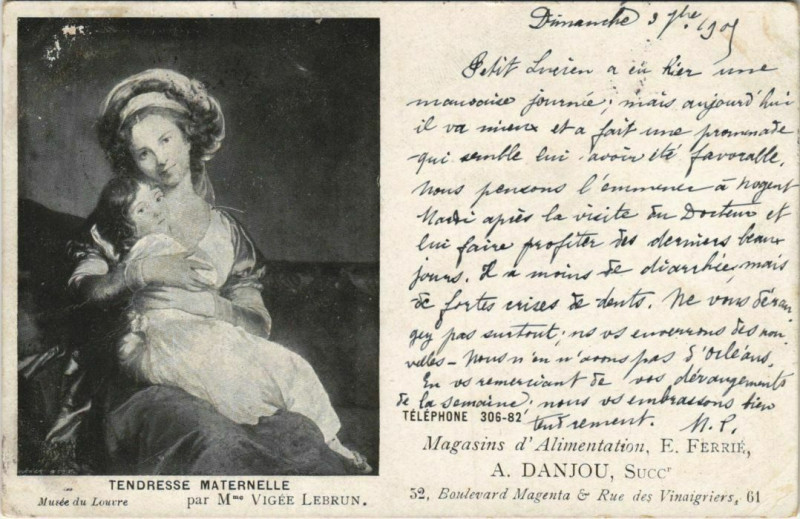 Dimanche 3 9bre 1901
Petit Lucien a eu hier une
mauvaise journée; mais aujourd'hui
il va mieux et a fait une promenade
qui semble lui avoir été favorable.
Nous pensons l'emmener à Nogent
Mardi après la visite du Docteur et
lui faire profiter des derniers beaux
jours. Il a moins de diarrhée, mais
de fortes crises de dents. Ne vous déran-
gez pas surtout; ns vs enverrons des nou-
velles - Nous n'en n'avons pas d'Orléans.
En vs remerciant de vos dérangements
de la semaine, nous vs embrassons bien
tendrement. M.P.
TÉLÉPHONE 306-82
Magasins d'Alimentation, E. FERRIÉ,
A. DANJOU, SUCCr
52, Boulevard Magenta & Rue des Vinaigriers, 61
TENDRESSE MATERNELLE
Musée du Louvre par Mme VIGÉE LEBRUN.